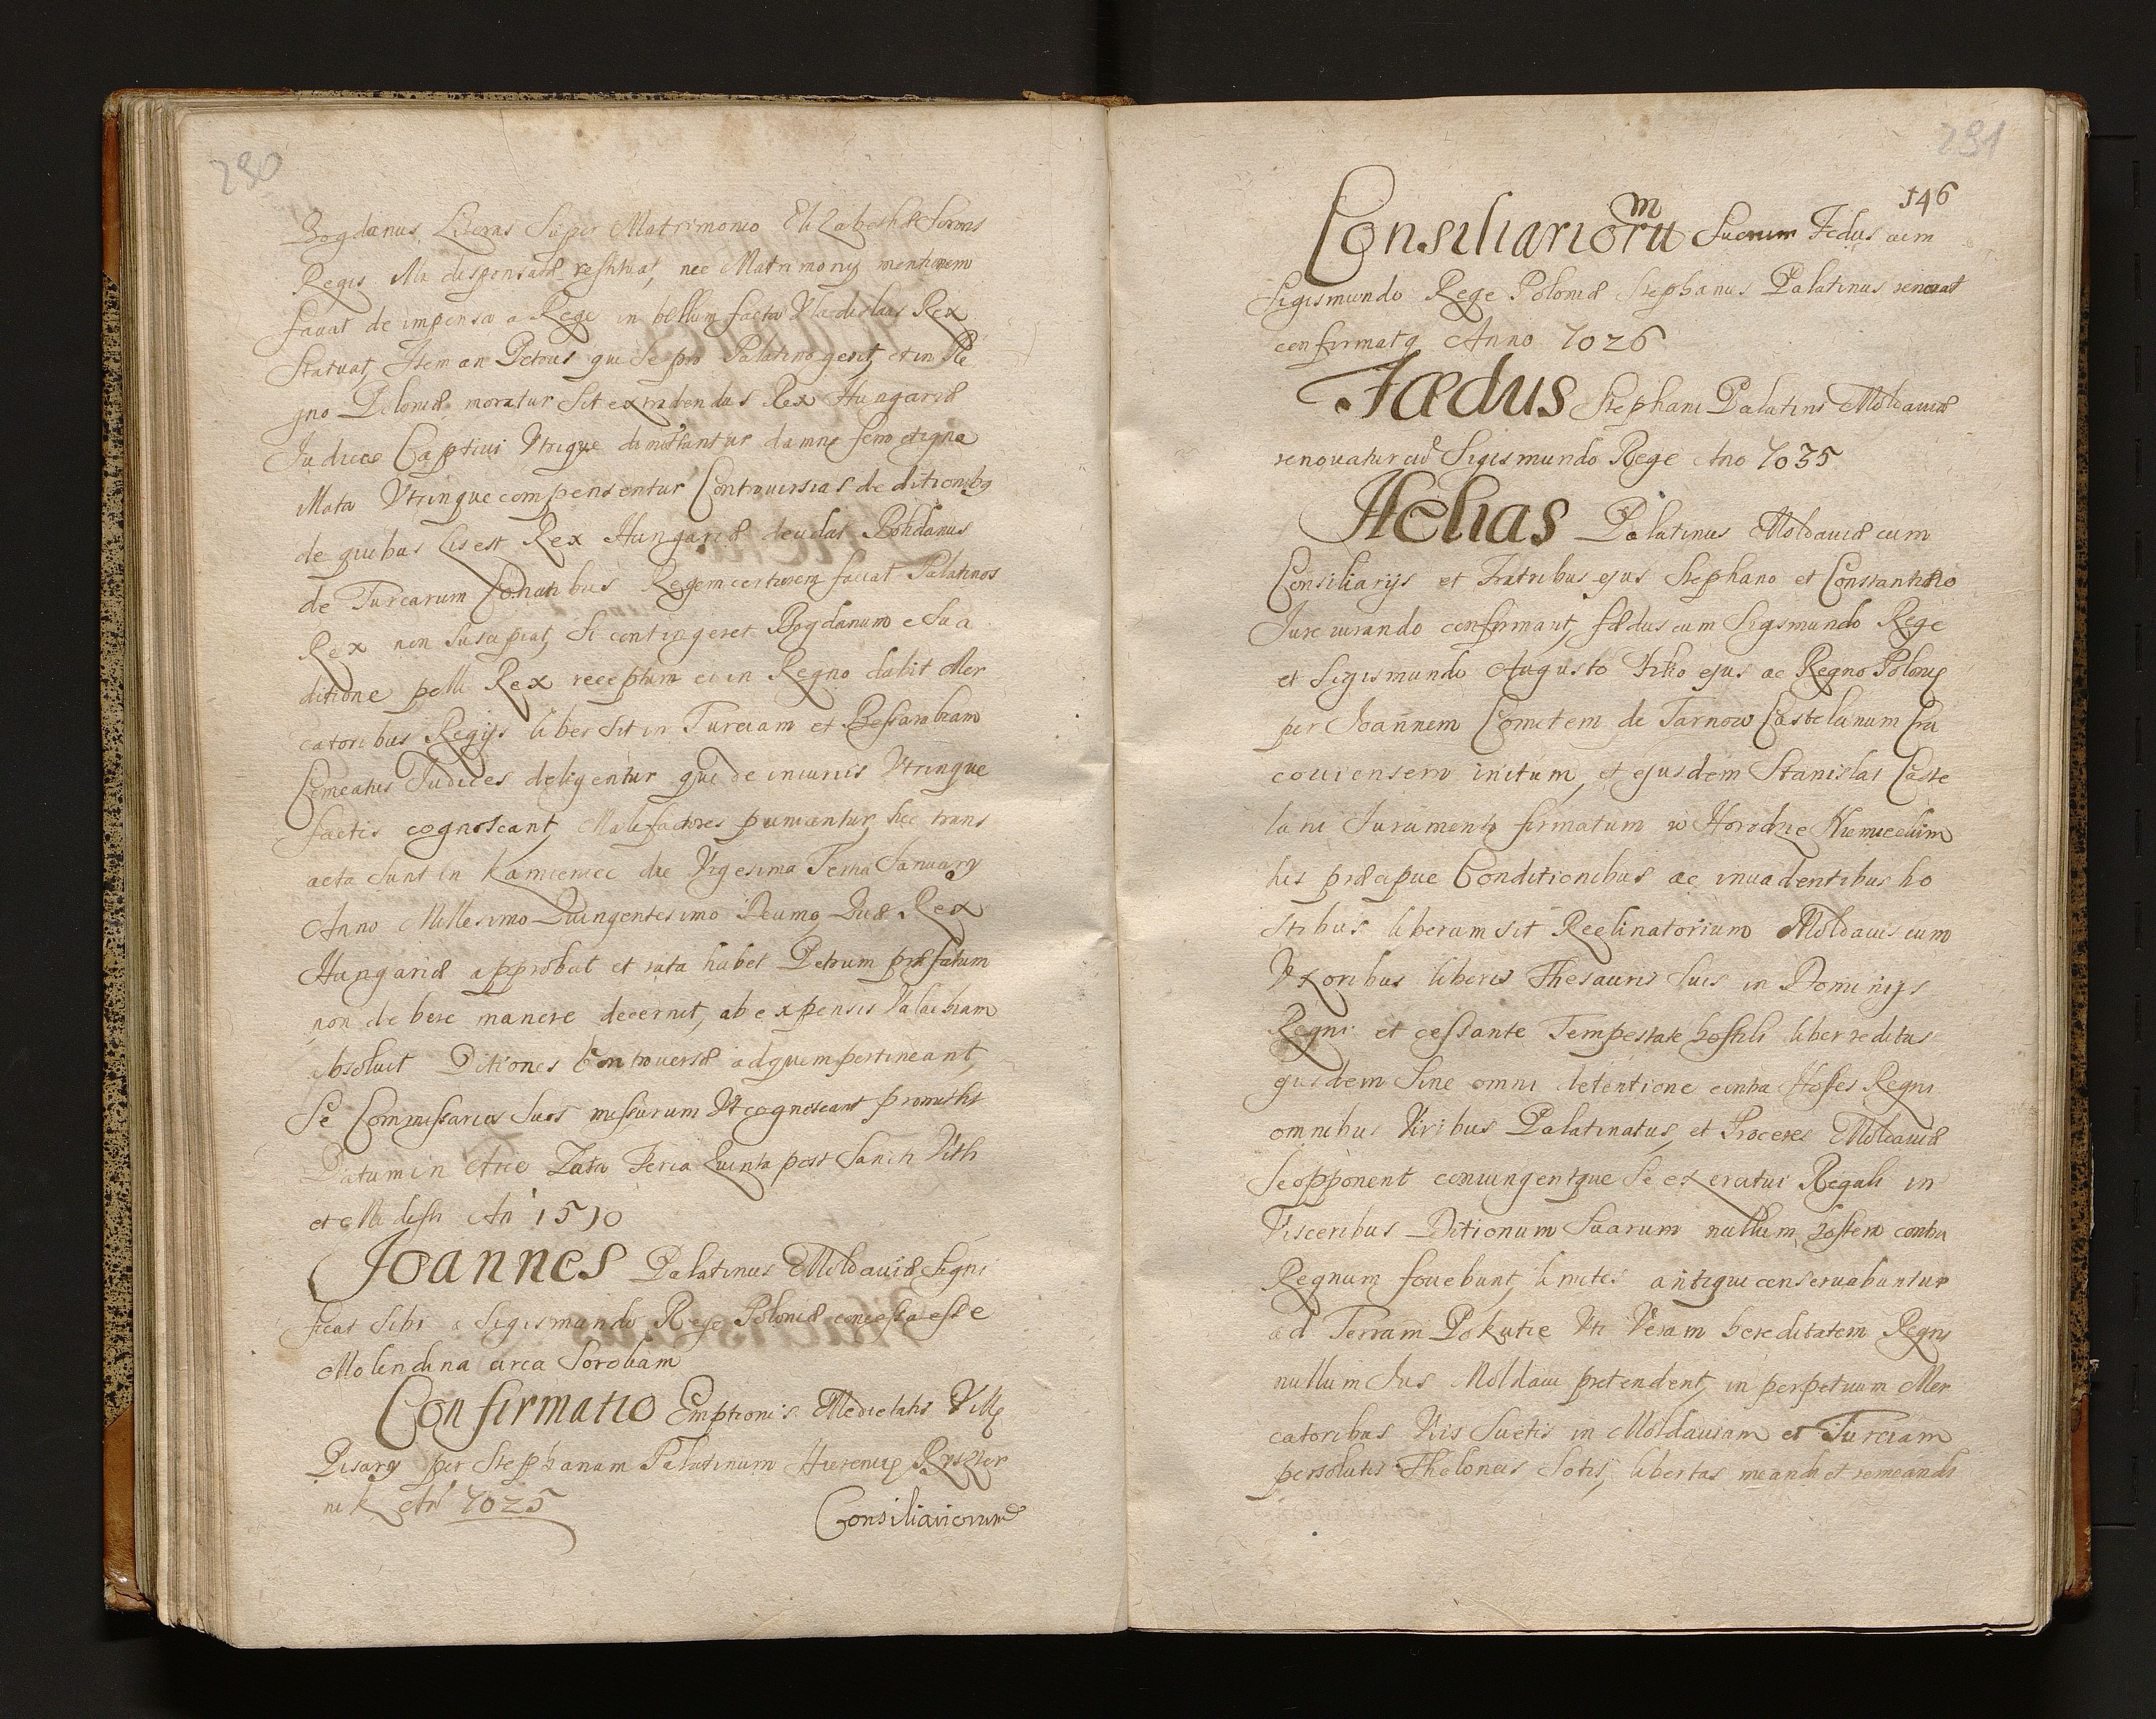 290
Bogdanus Literas Super Matrimonio Elizabethæ Sororis
Regis Alx dispensatæ restituat, nec Matrimonij mentionem
faciat de impensa a Rege in bellum facta Vladislaus Rex
Statuat, Item an Petrus qui Se pro Palatino gerit, et in Re
gno Poloniæ moratur Sit extradendus Rex Hungariæ
Judicet Captiui Vtrique dimittantur damna
Mata Vtrinque compensentur Controuersias de ditionibq
de quibus Lis est Rex Hungariæ Bohdanus
de Turcarum Conatibus Regem certiorem faciat Palatinos
Rex non Suscipiat, Si contingeret Bogdanum e Sua
ditione pelli Rex receptum ei in Regno dabit Mer
catoribus Regijs liber Sit in Turciam et Bessarabiam
Comeatus Judices deligentur qui de iniurijs Vtrinque
factis cognoscant, Malefactores puniantur, hæc trans
acta Sunt in Kamieniec die Vigesima Tertia January
Anno Millesimo Quingentesimo Decimo, Quæ Rex
Hungariæ approbat et rata habet Petrum præfatum
non debere manere decernit, ab expensis Valachiam
absoluit Ditiones Controuersæ ad quem pertineant,
Se Commissarios Suos missurum Vt cognoscant promisit
Datum in Arce Tata Feria Quinta post Sancti Viti
et Modesti An 1510
Joannes Palatinus Moldauiæ Signi
ficat Sibi a Sigismundo Rege Poloniæ concessa esse
Molendina circa Sorokam
Confirmatio Emptionis Medietatis Villę
Pisary per Stephanum Palatinum
nik An 7025
Consiliariorum
291
146
Consiliarioru m Suorum Fedus cum
Sigismundo Rege Poloniæ Stephanus Palatinus renouat
confirmatq Anno 7026
Fædus Stephani Palatini Moldauiæ
renouatur cū Sigismundo Rege Ano 7035
Helias Palatinus Moldauiæ cum
Consiliarijs et Fratribus ejus Stephano et Constantino
Jureiurando confirmant, fædus cum Sigismundo Rege
et Sigismundo Augusto Filio ejus ac Regno Polonię
per Joannem Comitem de Tarnow Castelanum Cra
couiensem initum, et ejusdem Stanislai Caste
lani Juramento firmatum w Horodne
his præcipue Conditionibus ac inuadentibus ho
stibus liberum sit Reclinatorium Moldauis cum
Vxoribus liberis Thesauris Suis in Dominijs
Regni et cessante Tempestate hostili liber reditus
ejusdem Sine omni detentione contra Hostes Regni
omnibus Viribus Palatinatus, et Proceres Moldauiæ
Se opponent coniungentque Se exercitui Regali in
Visceribus Ditionum Suarum nullum hostem contra
Regnum fouebunt, limites antiqui conseruabuntur
ad Terram Pokutie Vti Veram hereditatem Regni
nullum Jus Moldaui pretendent, in perpetuum Mer
catoribus Vijs Suetis in Moldauiam et Turciam
persolutis Theloneis Sotis, libertas meandi et remeandi